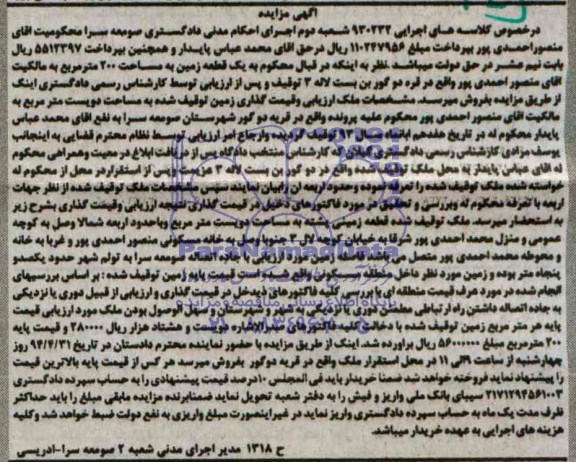 آگهی مزایده
درخصوص کلاسه های اجرایی ۹۳۰۲۳۲ شعبه دوم اجرای احکام مدنی دادگستری صومعه سرا محکومیت آقای
منصور احمدی پور بپرداخت مبلغ ۱۱۰۲۴۷۹۵۶ ریال درحق آقای محمد عباس پایدار و همچنین بپرداخت ۵۵۱۲۳۹۷ ریال
بابت نیم عشر در حق دولت میباشد. نظر به اینکه در قبال محکوم به یک قطعه زمین به مساحت ۲۰۰ مترمربع به مالکیت
آقای منصور احمدی پور واقع در قره دو گور بن بست لاله ۳ توقیف و پس از ارزیابی توسط کارشناس رسمی دادگستری اینک
از طریق مزایده بفروش میرسد. مشخصات ملک ارزیابی وقیمت گذاری زمین توقیف شده به مساحت دویست متر مربع به
مالکیت آقای منصور احمدی پور محکوم علیه پرونده واقع در قریه دو گور شهرستان صومعه سرا به نفع آقای محمد عباس
پایدار محکوم له در تاریخ هفدهم توقیف گردیده وارجاع امر ارزیابی توسط نظام محترم قضایی به اینجانب
یوسف مرادی کارشناس رسمی دادگستری گیلان که کارشناس منتخب دادگاه پس از دریافت ابلاغ در معیت وهمراهی محکوم
له آقای عباس پایدار به محل ملک توقیف شده واقع در دو گور بن بست لاله ۳ عزیمت وپس از استقرار در محل از محکوم له
خواسته شده ملک توقیف شده را تعرفه نموده وحدود اربعه آن رابیان نمایند سپس مشخصات ملک توقیف شده از نظر جهات
اربعه با تعرفه محکوم له وبررسی و تحقیق در مورد فاکتورهای دخیل در قیمت گذاری نتیجه ارزیابی وقیمت گذاری بشرح زیر
به استحضار میرسد. ملک توقیف شده قطعه زمینی پشته به مساحت دویست متر مربع وباحدود اربعه شمالا وصل به کوچه
عمومی و منزل محمد احمدی پور شرقا به خیابان کوچه لال ۳ جنوبا وصل به خانه مسکونی منصور احمدی پور و غربا به خانه
و محوطه محمد احمدی پور متصل می باشد فاصله زمین مورد ارزیابی با جاده اتصاله صومعه سرا به تولم شهر حدود یکصدو
پنجاه متر بوده و زمین مورد نظر داخل منطقه مسکونی واقع شده است قیمت پایه زمین توقیف شده: بر اساس بررسیهای
انجام شده در مورد عرف قیمت منطقه ای با بررسی کلیه فاکتور های ذیدخل در قیمت گذاری و ارزیابی از قبیل دوری یا نزدیکی
به جاده اتصاله داشتن راه ارتباطی مطمئن دوری یا نزدیکی به شهر و شهرستان و سهل الوصول بودن ملک مورد ارزیابی قیمت
پایه هر متر مربع زمین توقیف شده با دخالت کلیه فاکتورهای فوق الاشاره دویست و هشتاد هزار ریال ۲۸۰۰۰۰ و قیمت پایه
۲۰۰ مترمربع مبلغ ۵۶۰۰۰۰۰۰ ریال براورده شد. اینک از طریق مزایده با حضور نماینده محترم دادستان در تاریخ ۹۴/۴/۳۱ روز
چهارشنبه از ساعت ۹الی ۱۱ در محل استقرار ملک واقع در قریه دوگور بفروش میرسد هر کس از قیمت پایه بالاترین قیمت
را پیشنهاد نماید فروخته خواهد شد ضمنا خریدار باید فی المجلس ۱۰درصد قیمت پیشنهادی را به حساب سپرده دادگستری
۲۱۷۱۲۹۴۵۶۱۰۰۳ سیبای بانک ملی واریز و فیش را به دفتر شعبه تحویل نماید ضمنابرنده مزایده مابقی مبلغ را باید حداکثر
ظرف مدت یک ماه به حساب سپرده دادگستری واریز نماید در غیراینصورت مبلغ واریزی به نفع دولت ضبط خواهد شد وکلیه
هزینه های اجرایی به عهده خریدار میباشد.
ح ۱۳۱۸ مدیر اجرای مدنی شعبه ۲ صومعه سرا-ادریسی